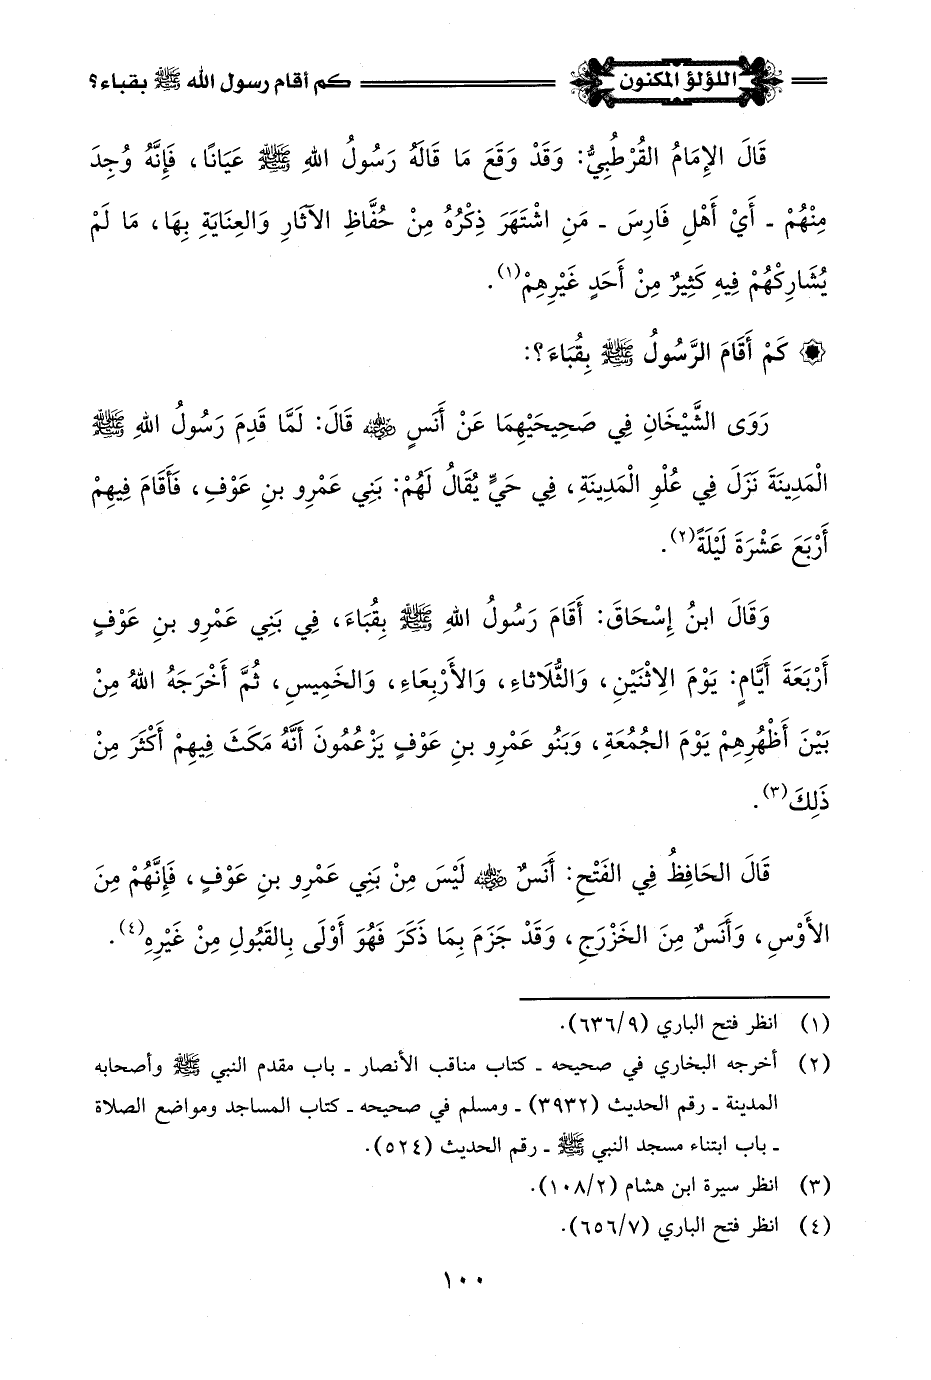 اللؤلؤ المكنون كم أقام رسول الله ﷺ بقباء؟
قَالَ الإِمَامُ القُرْطُبِيُّ: وَقَدْ وَقَعَ مَا قَالَهُ رَسُولُ اللهِ ﷺ عَيَانًا، فَإِنَّهُ وُجِدَ
مِنْهُمْ - أَيْ أَهْلِ فَارِسَ - مَنِ اشْتَهَرَ ذِكْرُهُ مِنْ حُفَّاظِ الآثَارِ وَالعِنَايَةِ بِهَا، مَا لَمْ
يُشَارِكْهُمْ فِيهِ كَثِيرٌ مِنْ أَحَدٍ غَيْرِهِمْ(١).
۞ كَمْ أَقَامَ الرَّسُولُ ﷺ بِقُبَاءَ؟:
رَوَى الشَّيْخَانِ فِي صَحِيحَيْهِمَا عَنْ أَنَسٍ رضي الله عنه قَالَ: لَمَّا قَدِمَ رَسُولُ اللهِ ﷺ
الْمَدِينَةَ نَزَلَ فِي عُلْوِ الْمَدِينَةِ، فِي حَيٍّ يُقَالُ لَهُمْ: بَنِي عَمْرِو بنِ عَوْفٍ، فَأَقَامَ فِيهِمْ
أَرْبَعَ عَشْرَةَ لَيْلَةً(٢).
وَقَالَ ابنُ إِسْحَاقَ: أَقَامَ رَسُولُ اللهِ ﷺ بِقُبَاءَ، فِي بَنِي عَمْرِو بنِ عَوْفٍ
أَرْبَعَةَ أَيَّامٍ: يَوْمَ الِاثْنَيْنِ، وَالثُّلَاثَاءِ، وَالأَرْبِعَاءِ، وَالخَمِيسِ، ثُمَّ أَخْرَجَهُ اللهُ مِنْ
بَيْنَ أَظْهُرِهِمْ يَوْمَ الجُمُعَةِ، وَبَنُو عَمْرِو بنِ عَوْفٍ يَزْعُمُونَ أَنَّهُ مَكَثَ فِيهِمْ أَكْثَرَ مِنْ
ذَلِكَ(٣).
قَالَ الحَافِظُ فِي الفَتْحِ: أَنَسٌ رضي الله عنه لَيْسَ مِنْ بَنِي عَمْرِو بنِ عَوْفٍ، فَإِنَّهُمْ مِنَ
الأَوْسِ، وَأَنَسٌ مِنَ الخَزْرَجِ، وَقَدْ جَزَمَ بِمَا ذَكَرَ فَهُوَ أَوْلَى بِالقَبُولِ مِنْ غَيْرِهِ(٤).
(١) انظر فتح الباري (٦٣٦/٩).
(٢) أخرجه البخاري في صحيحه - كتاب مناقب الأنصار - باب مقدم النبي ﷺ وأصحابه
المدينة - رقم الحديث (٣٩٣٢) - ومسلم في صحيحه - كتاب المساجد ومواضع الصلاة
- باب ابتناء مسجد النبي ﷺ - رقم الحديث (٥٢٤).
(٣) انظر سيرة ابن هشام (١٠٨/٢).
(٤) انظر فتح الباري (٦٥٦/٧).
١٠٠